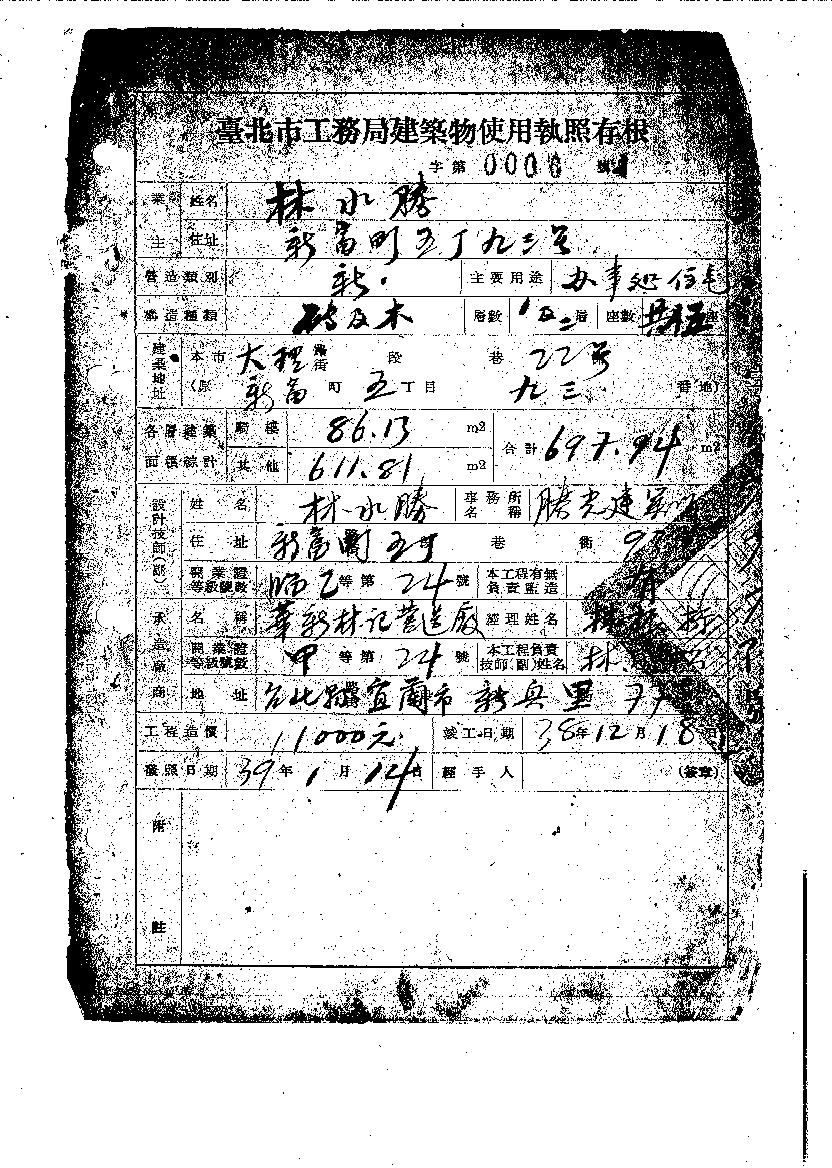 臺北市工務局建築物使用執照存根
字第 0006 號
業主 姓名 林水勝
住址 新富町五丁九三号
營造類別 新. 主要用途 办事処 住宅
構造種類 磚及木 層數 1及二層 座數 共五座
建築地址 本市 大理路街 段 巷 22号
(原 新富町 五丁目 九三 番地)
各層建築面積綜計 騎樓 86.13 m2 合計 697.94 m2
其他 611.81 m2
設計技師(副) 姓名 林水勝 事務所名稱 勝光建築
住址 新富町五丁 巷 街 9
開業證等級號數 師乙等第 24 號 本工程有無負責監造 有
承造廠商 名稱 華新林記營造廠 經理姓名 林
開業證等級號數 甲等第 24 號 本工程負責技師(副)姓名 林
地址 台北縣宜蘭市 新興里
工程造價 11000元. 竣工日期 38年12月18日
發照日期 39年1月14日 經手人 (簽章)
附註